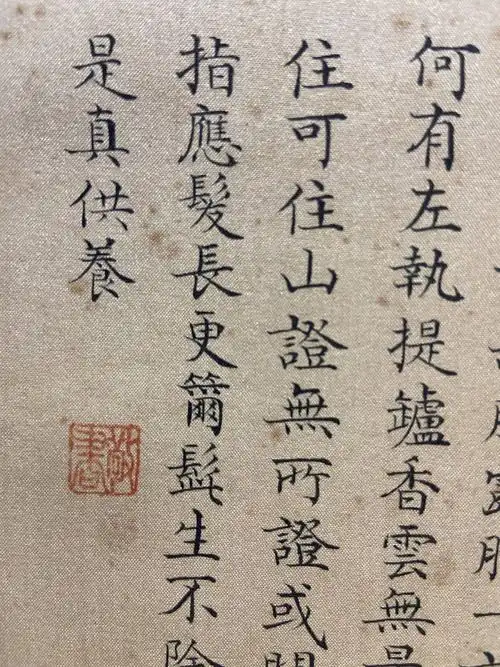 何有左執提鑪香雲無
住可住山證無所證或
指應髮長更籋髭生不除
是真供養
敬書